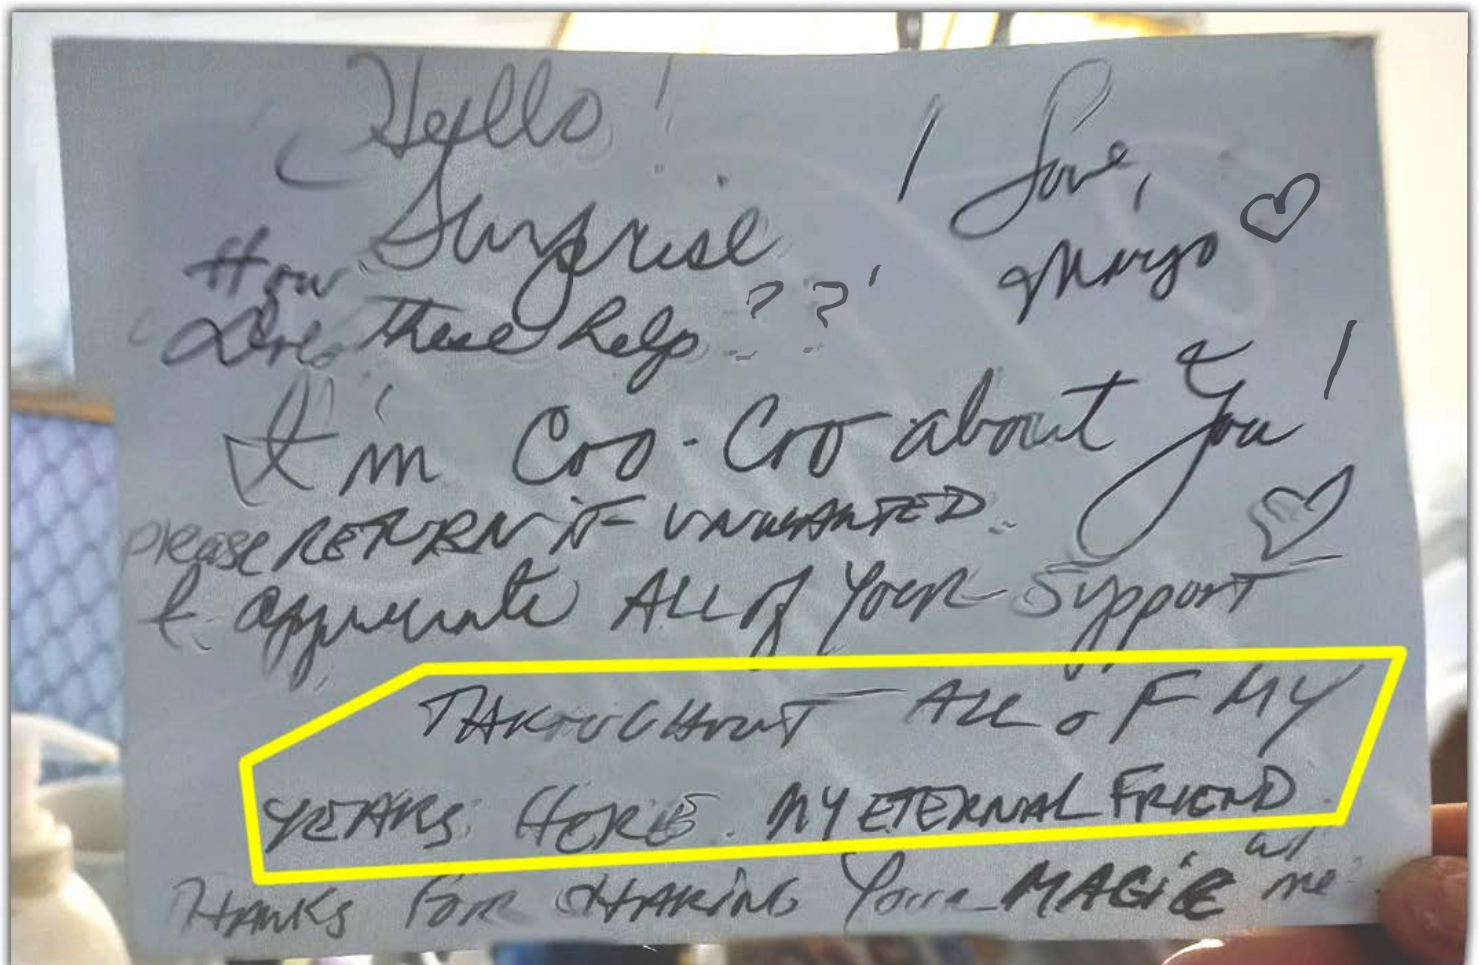 Hello!
Surprise!
How
Are these help??
I'm Coo-Coo about you!
please RETURN IF UNWANTED.
& appreciate ALL of your support
THROUGHOUT ALL OF MY
YEARS HERE. MY ETERNAL FRIEND.
THANKS FOR SHARING Your MAGIC w/ me
Love,
Margo